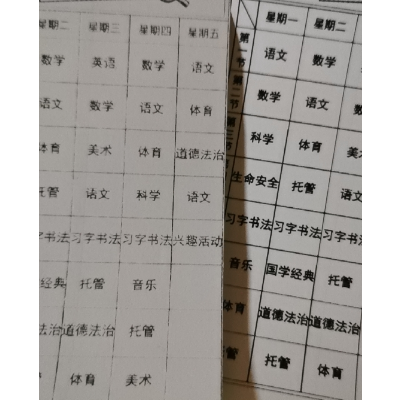 星期二 星期三 星期四 星期五
数学 英语 数学 语文
语文 数学 语文 体育
体育 美术 体育 道德法治
托管 语文 科学 语文
习字书法 习字书法 习字书法 兴趣活动
国学经典 托管 音乐
道德法治 道德法治 托管
体育 美术
星期一 星期二
第一节 语文 数学
第二节 数学 语文
第三节 科学 体育
生命安全 托管 语文
习字书法 习字书法 习字
音乐 国学经典 托管
体育 道德法治 道德法治
托管 体育